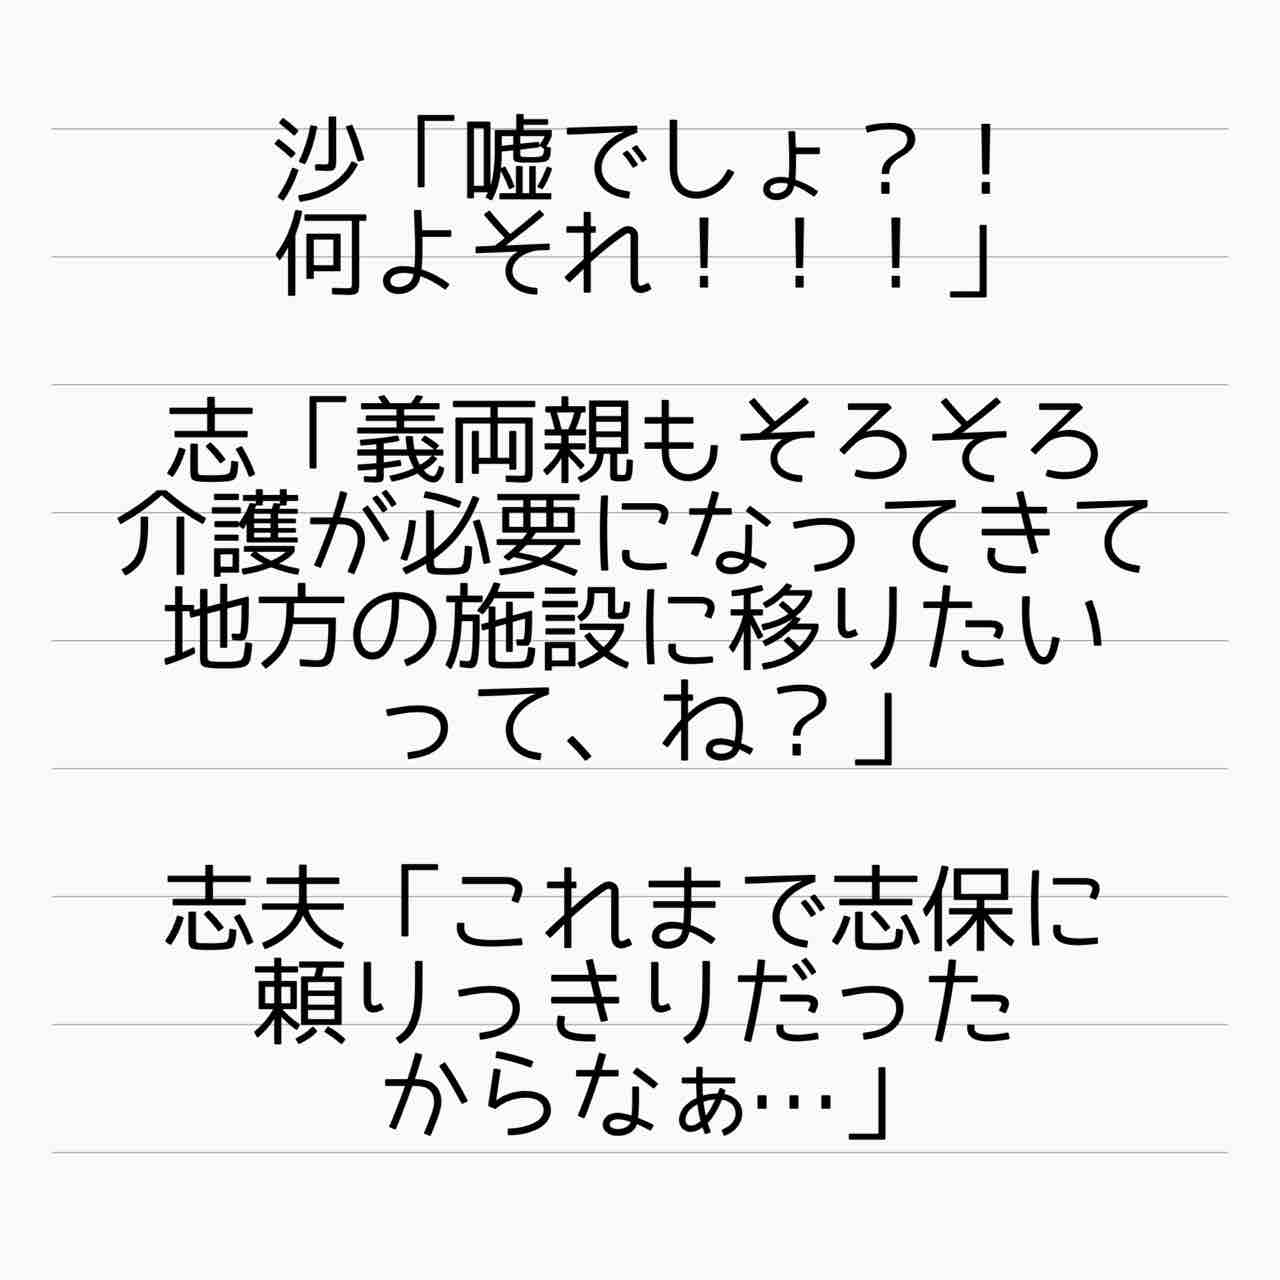 沙「嘘でしょ？！
何よそれ！！！」
志「義両親もそろそろ
介護が必要になってきて
地方の施設に移りたい
って、ね？」
志夫「これまで志保に
頼りっきりだった
からなぁ…」